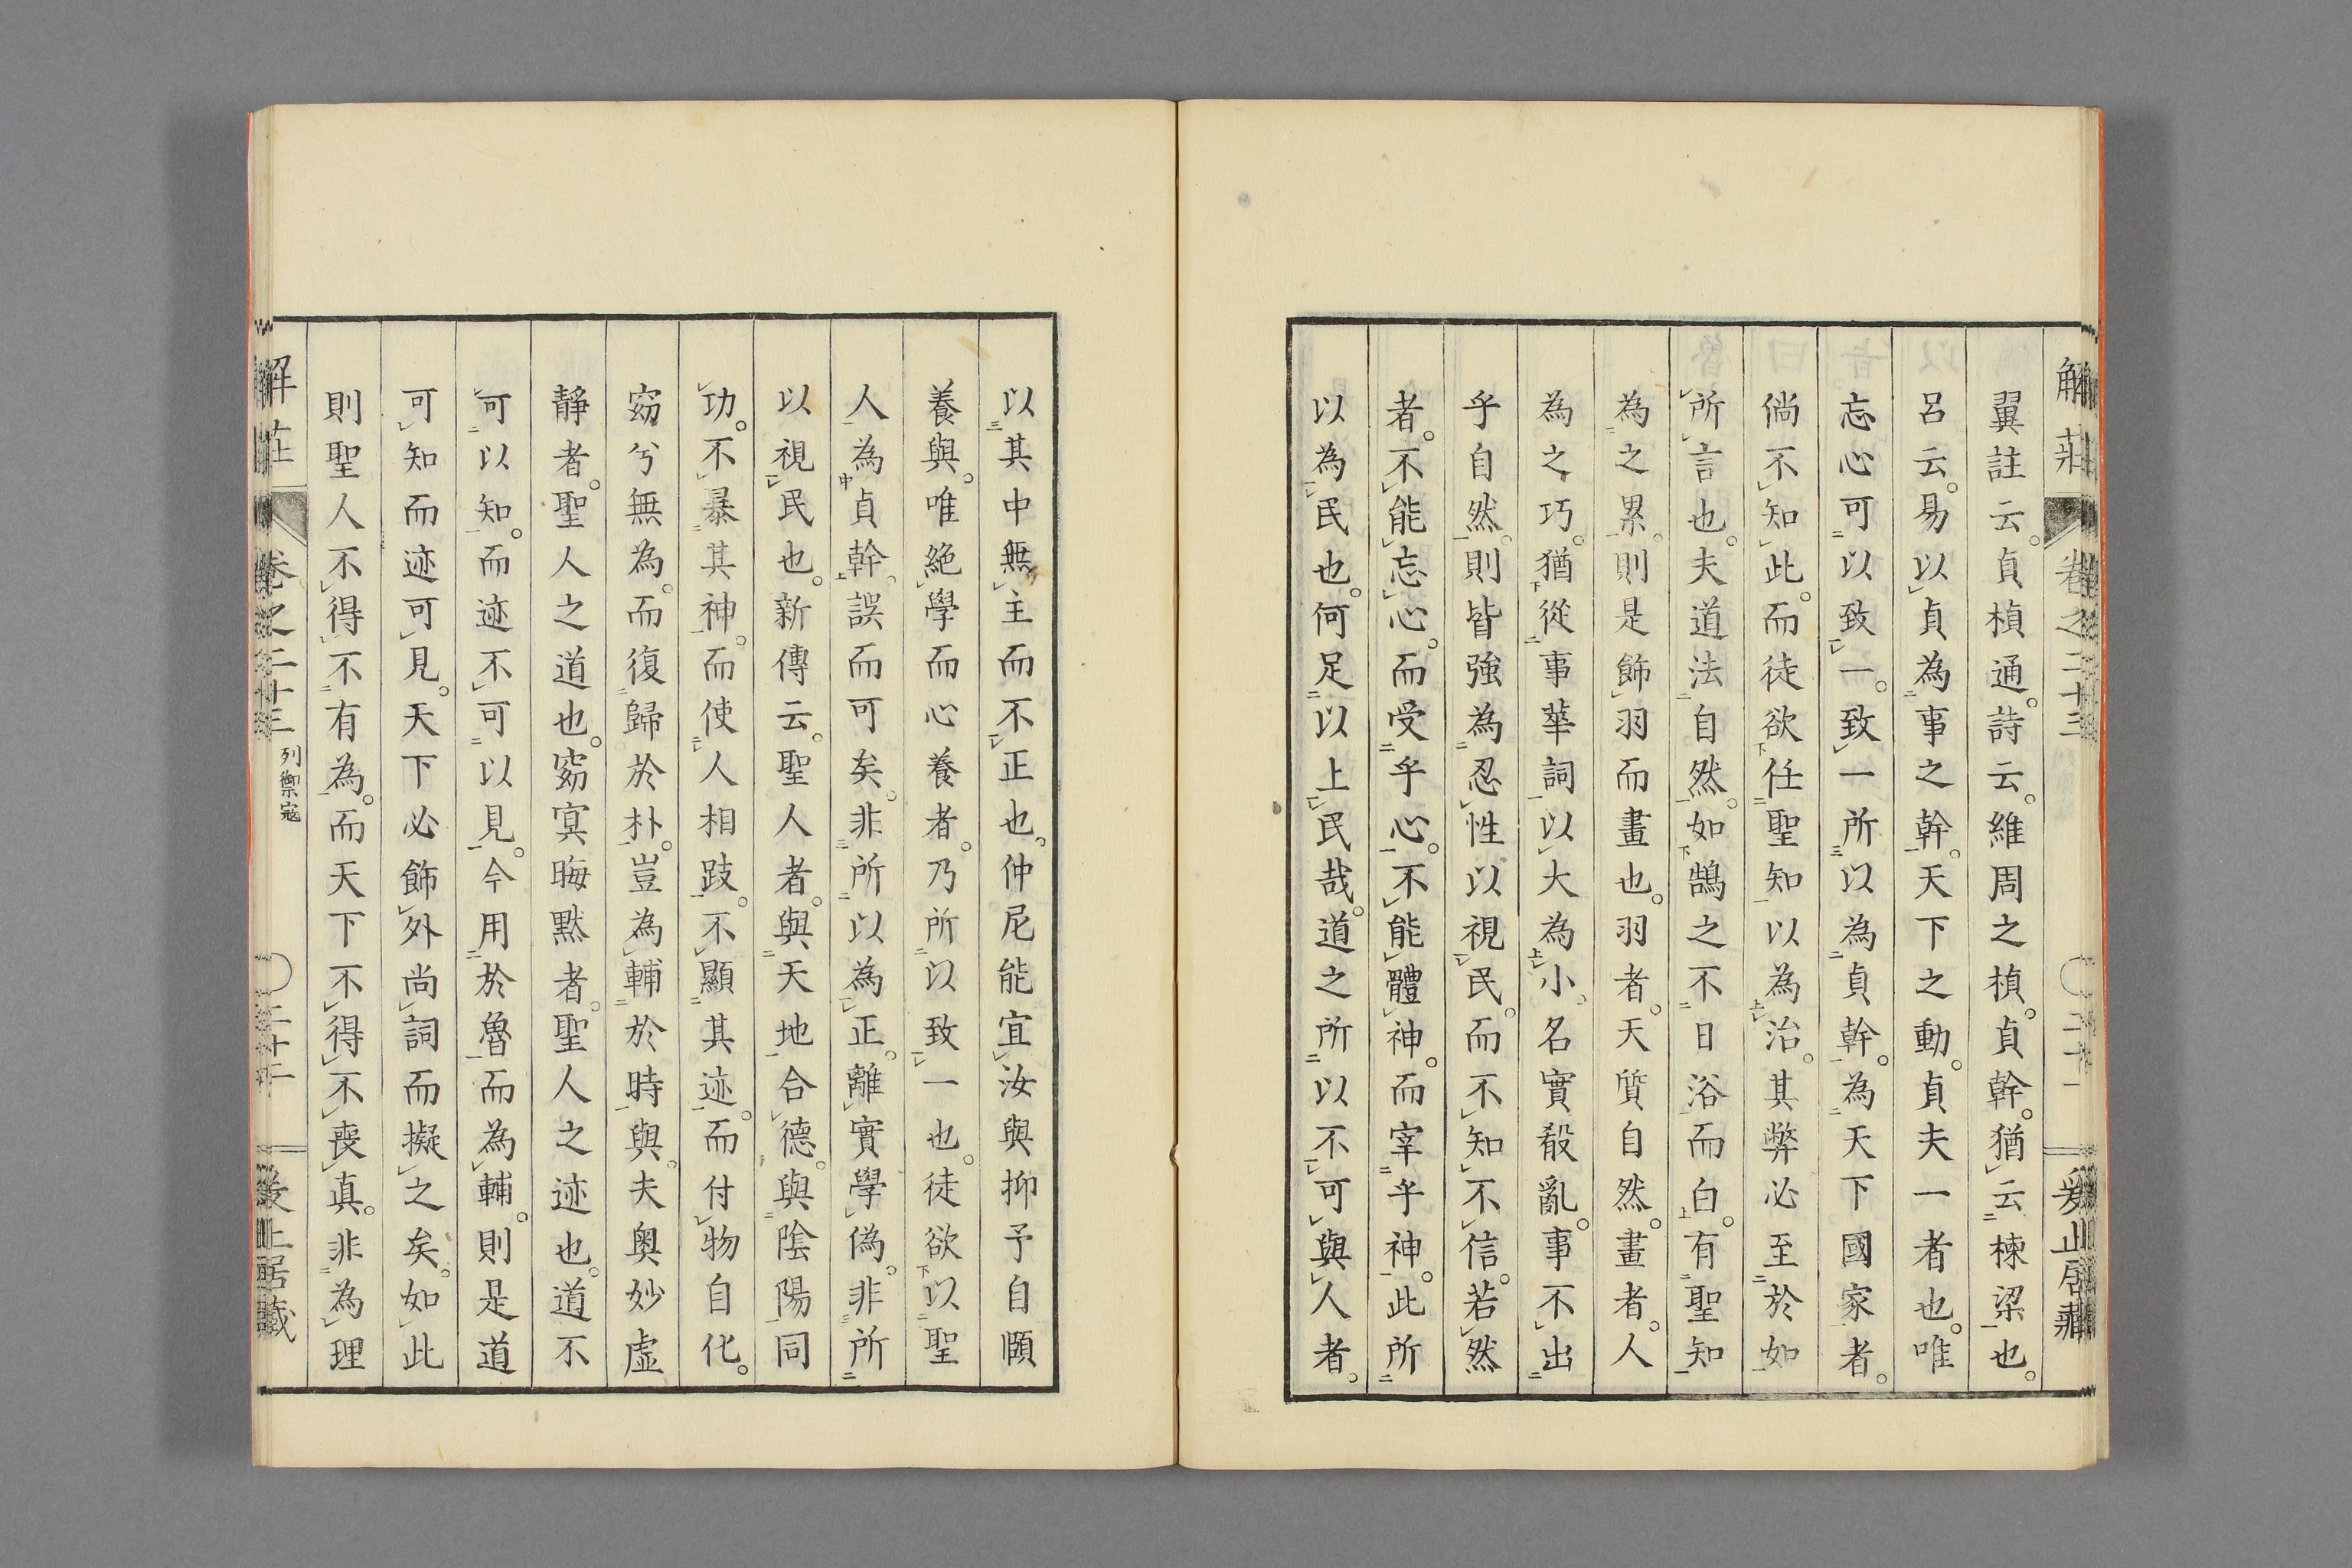 翼註云。貞楨通。詩云。維周之楨。貞幹。猶云棟梁也。
呂云。易以貞為事之幹。天下之動。貞夫一者也。唯
忘心可以致一。致一所以為貞幹。為天下國家者。
倘不知此。而徒欲任聖知以為治。其弊必至於如
所言也。夫道法自然。如鵠之不日浴而白。有聖知
為之累。則是飾羽而畫也。羽者。天質自然。畫者。人
為之巧。猶從事華詞。以大為小。名實殽亂。事不出
乎自然。則皆強為忍性以視民。而不知不信。若然
者。不能忘心。而受乎心。不能體神。而宰乎神。此所
以為民也。何足以上民哉。道之所以不可與人者。
以其中無主而不正也。仲尼能宜汝與抑予自頤
養與。唯絕學而心養者。乃所以致一也。徒欲以聖
人為貞幹。誤而可矣。非所以為正。離實學偽。非所
以視民也。新傳云。聖人者。與天地合德。與陰陽同
功。不暴其神。而使人相跂。不顯其迹。而付物自化。
窈兮無為。而復歸於朴。豈為輔於時與。夫奧妙虛
靜者。聖人之道也。窈冥晦默者。聖人之迹也。道不
可以知。而迹不可以見。今用於魯而為輔。則是道
可知而迹可見。天下必飾外尚詞而擬之矣。如此
則聖人不得不有為。而天下不得不喪真。非為理
解莊 卷之二十三 列禦寇 二十二